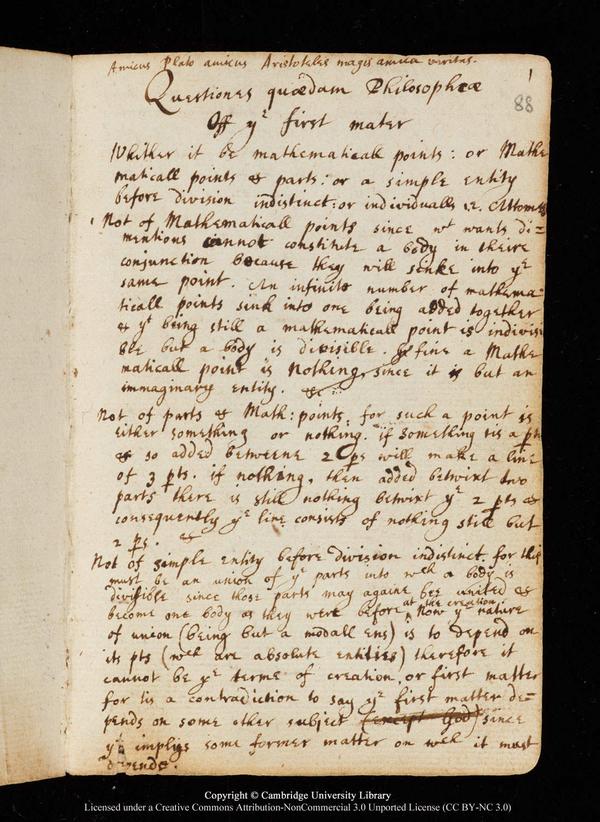 Amicus Plato amicus Aristoteles magis amica veritas.
1
88
Questiones quædam Philosophcæ
Off yᵉ first mater
Whither it be mathematicall points: or Mathe
maticall points & parts: or a simple entity
before division indistinct: or individualls i.e. Attomes
Not of Mathematicall points since wᵗ wants di=
mentions cannot constitute a body in theire
conjunction because they will sinke into yᵉ
same point. An infinite number of mathema=
ticall points sink into one being added together
& yᵗ being still a mathematicall point is indivisi
ble but a body is divisible. fine a Mathe
maticall point is Nothing, since it is but an
immaginary entity. &c:
Not of parts & Math: points, for such a point is
either something or nothing. if something tis a pt
& so added betweene 2 ps will make a line
of 3 pts. if nothing, then added betwixt two
parts there is still nothing betwixt yᵉ 2 pts &
consequently yᵉ line consists of nothing still but
2 ps. &
Not of simple entity before division indistinct. for this
must be an union of yᵉ parts into wᶜʰ a body is
divisible since those parts may againe bee united &
become one body as they were before at the creation. Now yᵉ nature
of union (being but a modall ens) is to depend on
its pts (wᶜʰ are absolute entities) therefore it
cannot be yᵉ terme of creation, or first matter
for tis a contradiction to say yᵉ first matter de=
pends on some other subject (except God) since
yᵗ implys some former matter on wᶜʰ it must
depende.
Copyright © Cambridge University Library
Licensed under a Creative Commons Attribution-NonCommercial 3.0 Unported License (CC BY-NC 3.0)